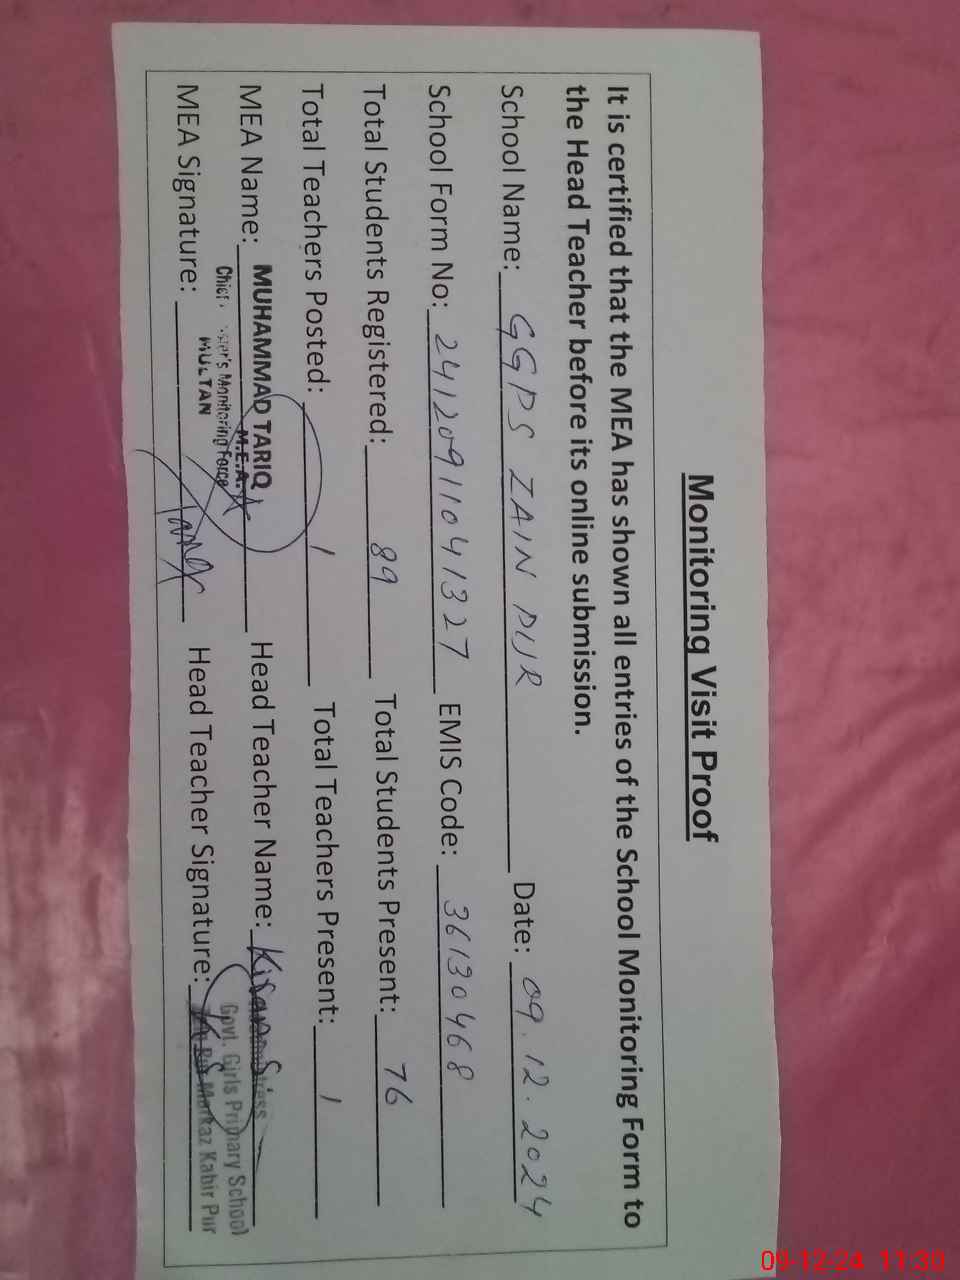 Monitoring Visit Proof
It is certified that the MEA has shown all entries of the School Monitoring Form to
the Head Teacher before its online submission.
School Name: GGPS ZAIN PUR Date: 09.12.2024
School Form No: 24120911041327 EMIS Code: 36130468
Total Students Registered: 89 Total Students Present: 76
Total Teachers Posted: 1 Total Teachers Present: 1
MEA Name: MUHAMMAD TARIQ Head Teacher Name: Kiran
M.E.A.
Chief Monitoring Force Govt. Girls Primary School
MULTAN Pur Markaz Kabir Pur
MEA Signature: Head Teacher Signature:
09-12-24 11:30